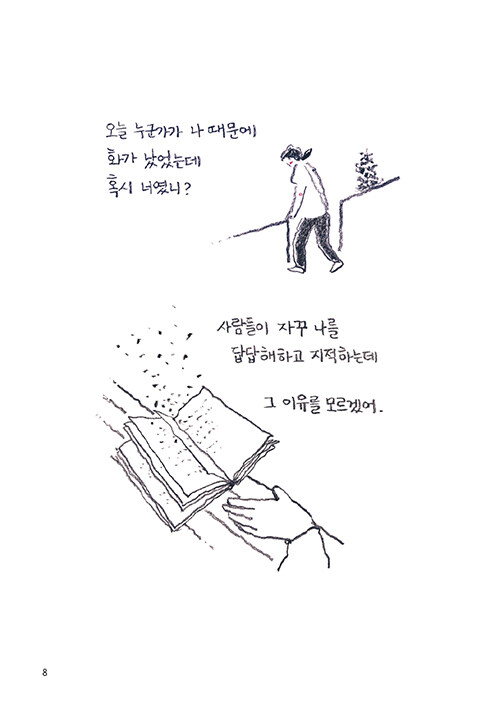 오늘 누군가가 나 때문에
화가 났었는데
혹시 너였니?
사람들이 자꾸 나를
답답해하고 지적하는데
그 이유를 모르겠어.
8